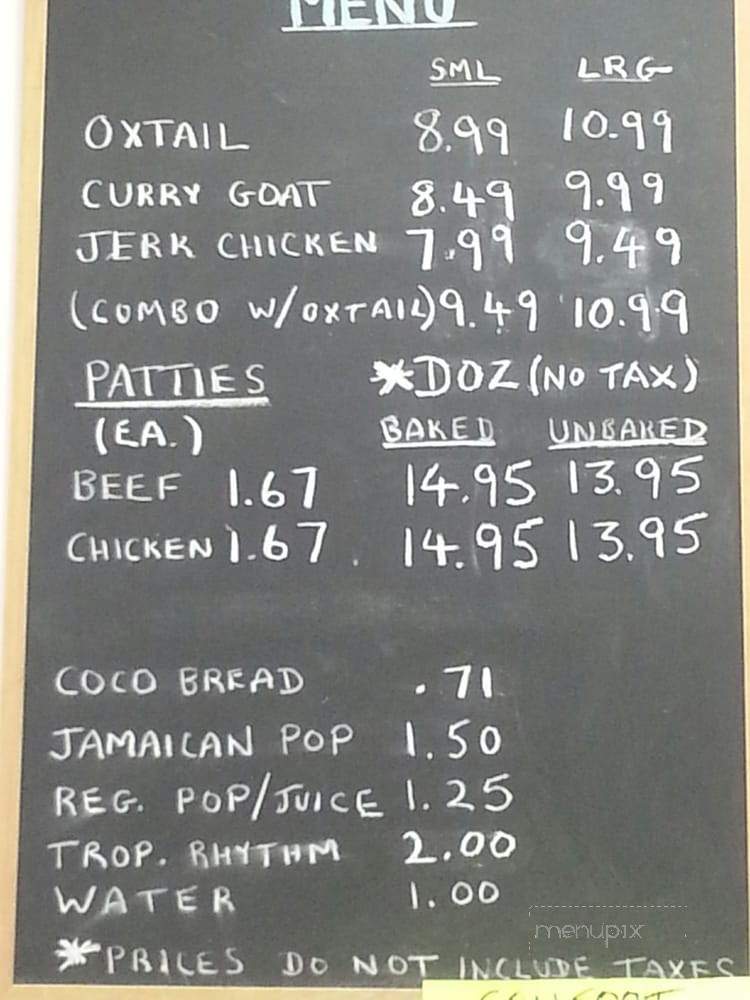 MENU
SML LRG
OXTAIL 8.99 10.99
CURRY GOAT 8.49 9.99
JERK CHICKEN 7.99 9.49
(COMBO W/OXTAIL) 9.49 10.99
PATTIES *DOZ (NO TAX)
(EA.) BAKED UNBAKED
BEEF 1.67 14.95 13.95
CHICKEN 1.67 14.95 13.95
COCO BREAD .71
JAMAICAN POP 1.50
REG. POP/JUICE 1.25
TROP. RHYTHM 2.00
WATER 1.00
menupix
*PRICES DO NOT INCLUDE TAXES